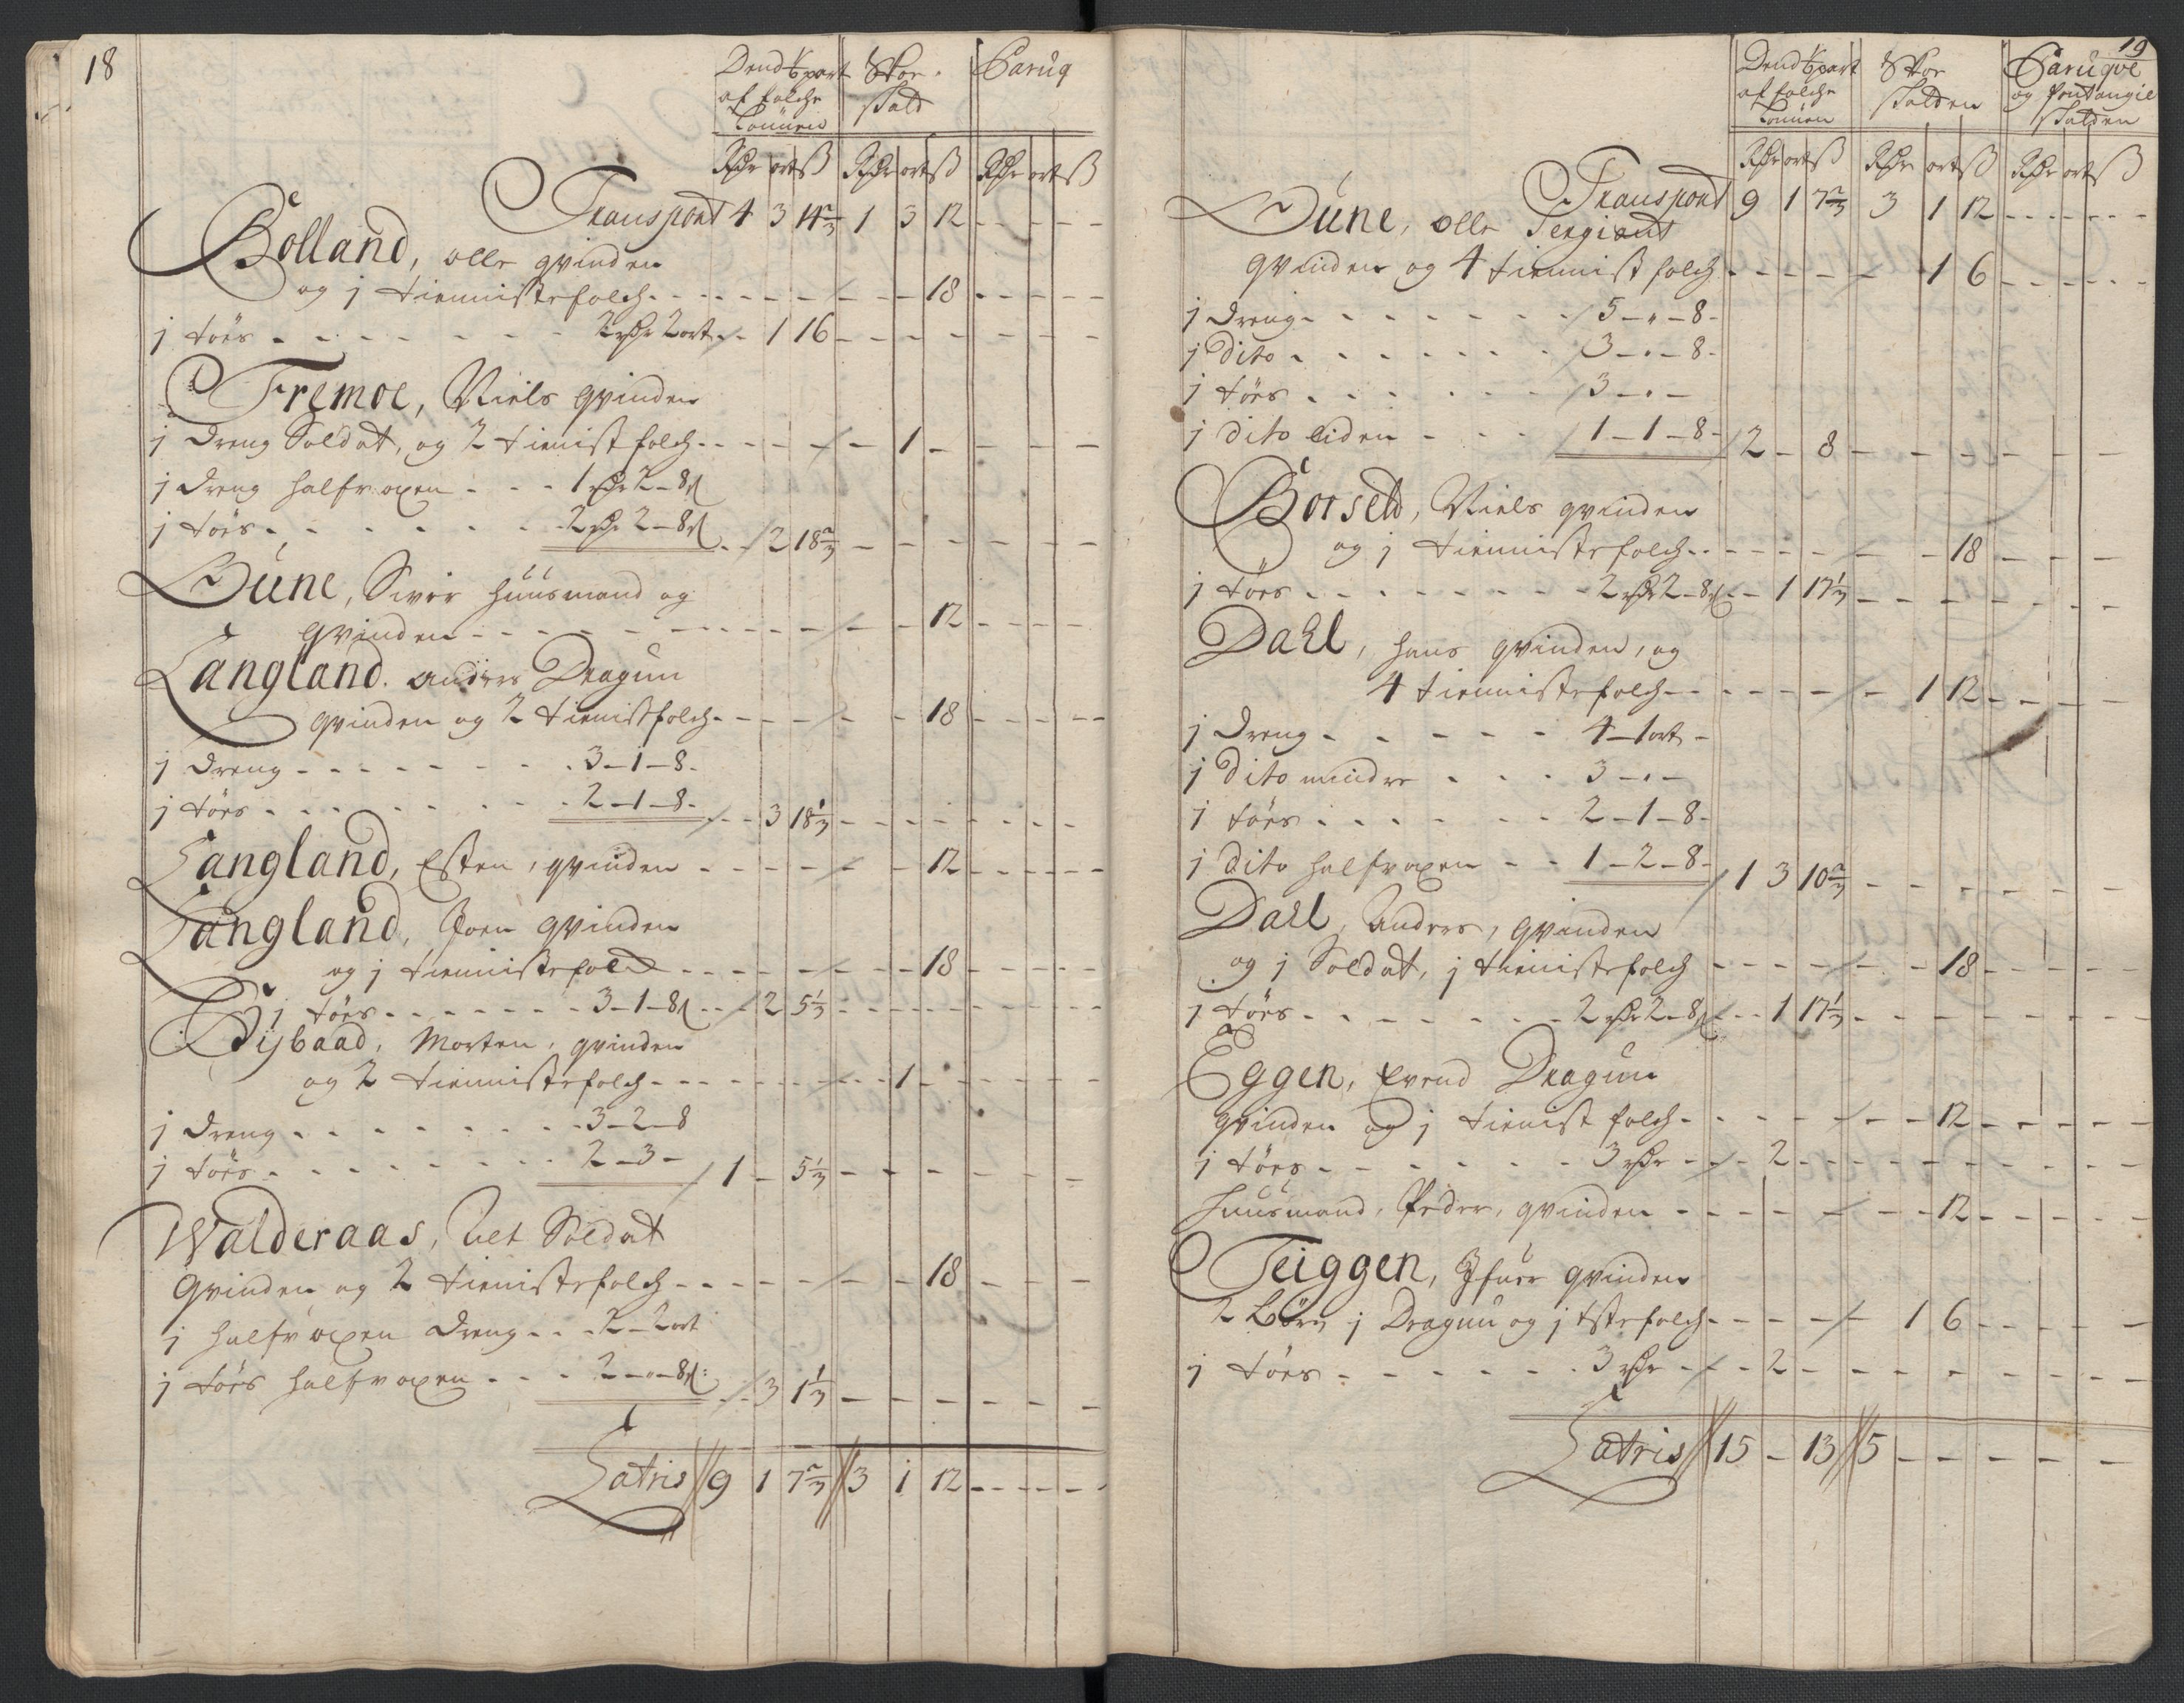 18
Dend 1/6 part af folche Lønnen | Skoe skatt | Paruq
Rdr ort ß | Rdr ort ß | Rdr ort ß
Transport 4 3 14 2/3 | 1 3 12 - - -
Bolland, olle qvinden
og j tiennistefolch - - - 18 - - -
j tøes - - - 2 rdr 2 ort - 1 16 - - -
Fremoe, Niels qvinden
j dreng Soldat, og 2 tienist folch - - - 1 - - -
j dreng halfvoxen - - - 1 rdr 2 - 8 ß
j tøes - - - 2 rdr 2 - 8 ß - 2 18 2/3 - - -
Dune, Sivor huusmand og
qvinden - - - 12 - - -
Langland. anders Dragun
qvinden og 2 tienistfolch - - - 18 - - -
j dreng - - - 3 - 1 - 8 -
j tøes - - - 2 - 1 - 8 - - 3 18 1/3 - - -
Langland, Esten, qvinden - - - 12 - - -
Langland, Joen qvinden
og j tiennistefolch - - - 18 - - -
j tøes - - - 3 - 1 - 8 ß - 2 5 1/3 - - -
Morten, qvinden
og 2 tiennistefolch - - - 1 - - -
j dreng - - - 3 - 2 - 8
j tøes - - - 2 - 3 - 1 - 5 1/3 - - -
Walderaas, Soldat
qvinden og 2 tienistefolch - - - 18 - - -
j halfvoxen dreng - - - 2 - 2 ort
j tøes halfvoxen - - - 2 - " - 8 ß: - 3 1 1/3 - - -
Latris 9 1 7 2/3 | 3 1 12 - - -
19
Dend 1/6 part af folche Lønnen | Skoe skatten | Paruque og fontangie skatten
Rdr ort ß | Rdr ort ß | Rdr ort ß
Transport 9 1 7 2/3 | 3 1 12 - - -
Dune, olle Sergiant
qvinden og 4 tiennist folch - - - 1 6 - - -
j dreng - - - 5 - " - 8 -
j dito - - - 3 - " - 8 -
j tøes - - - 3 - " -
j dito liden - - - 1 - 1 - 8 - 2 - 8 - - -
Borseld, Niels qvinden
og j tiennistefolch - - - 18 - - -
j tøes - - - 2 rdr 2 - 8 ß - 1 17 1/3 - - -
Dahl, hans qvinden, og
4 tiennistefolch - - - 1 12 - - -
j dreng - - - 4 - 1 ort -
j dito mindre - - - 3 - " -
1 tøes - - - 2 - 1 - 8 -
j dito halfvoxen - - 1 - 2 - 8 - 1 3 10 2/3 - - -
Dahl, Anders, qvinden
og j Soldat, j tienistefolch - - - 18 - - -
j tøes - - - 2 rdr 2 - 8 ß - 1 17 1/3 - - -
Eggen, Evend Dragun
qvinden og j tienist folch - - - 12 - - -
j tøes - - - 3 rdr - - 2 - - -
huusmand, Peder, qvinden - - - 12 - - -
Teiggen, Ifuer qvinden
2 børn j Dragun og j tstefolch - - - 1 6 - - -
j tøes - - - 3 rdr - - 2 - - -
Latris 15 - 13 | 5 - - -